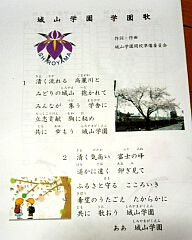 城山学園 学園歌
作詞・作曲
城山学園開校準備委員会
SHIROYAMA
1
清く流れる 高麗川と
みどりの城山 抱かれて
みんなが 集う 学舎に
立志貢献 胸に秘め
共に 歩もう 城山学園
2 清く気高い 富士の峰
遥かに遠く 仰ぎ見て
ふるさと守る こころいき
希望のうたごえ たからかに
共に 歌おう 城山学園
ああ 城山学園